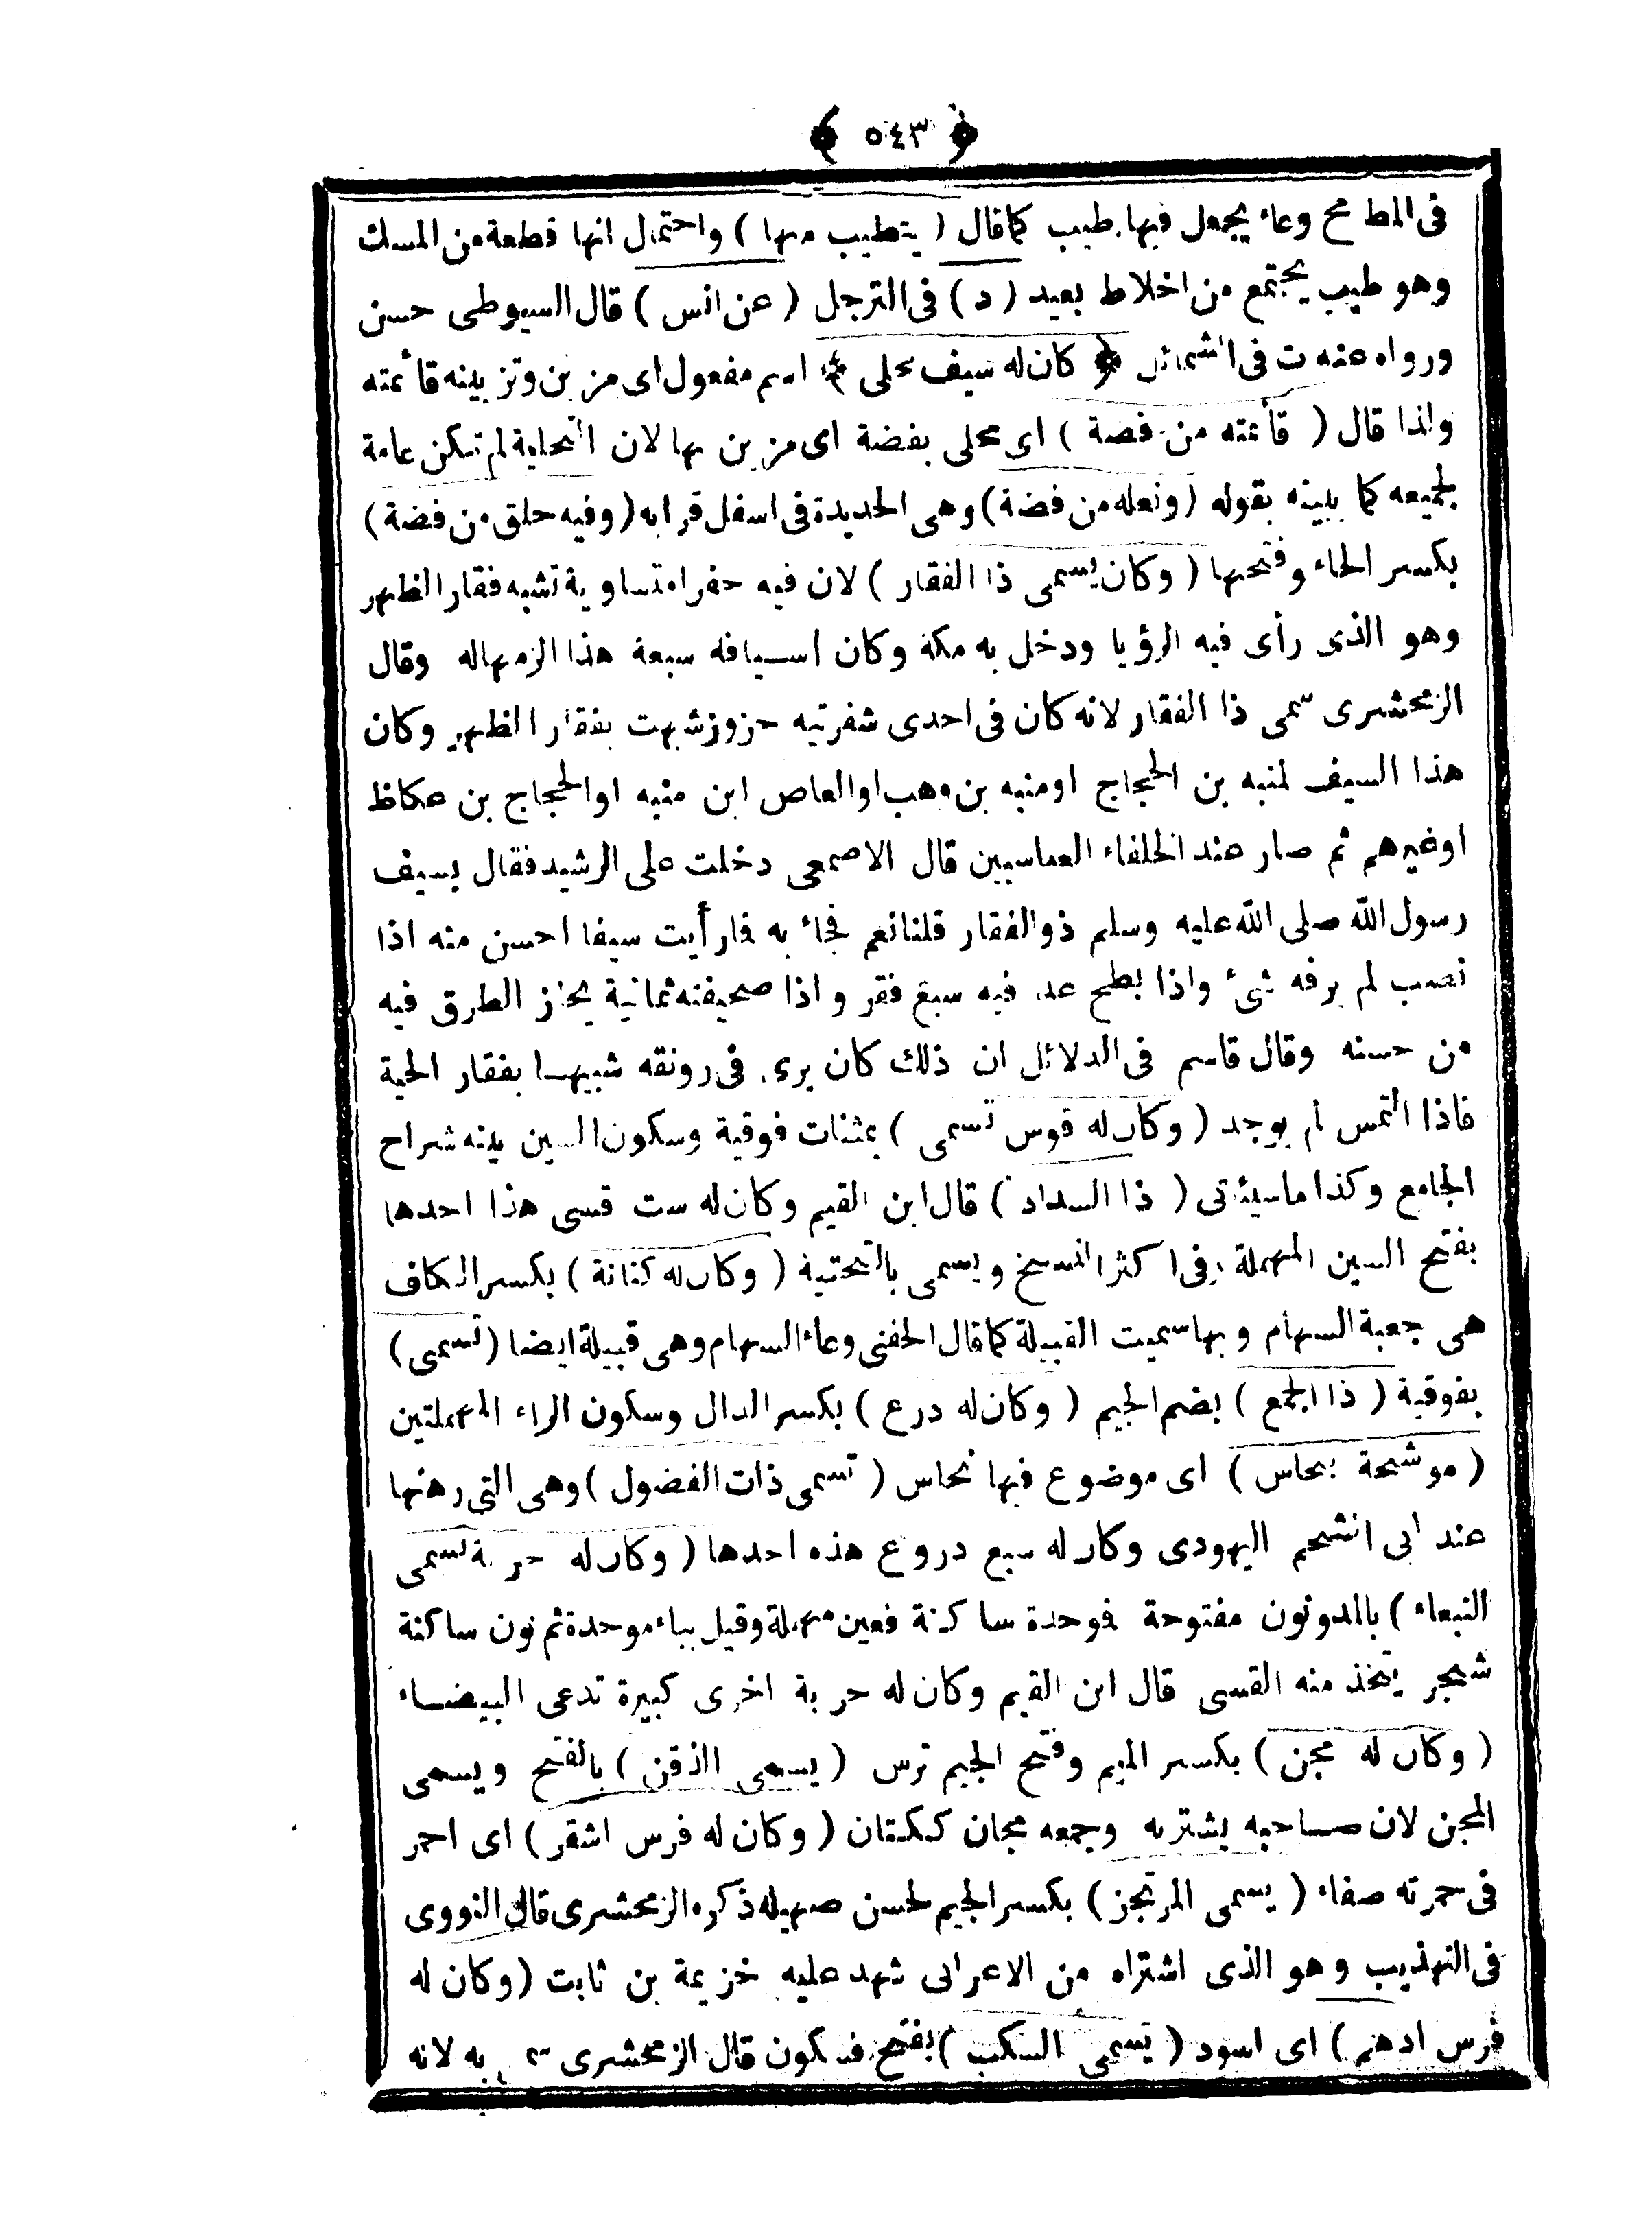 ﴿ ٥٤٣ ﴾
فى المطامح وعاء يجعل فيها طيب كما قال (يتطيب منها) واحتمال انها قطعة من المسك
وهو طيب يجتمع من اخلاط بعيد (د) فى الترجل (عن انس) قال السيوطى حسن
ورواه عنه ت فى الشمائل ﴿ كان له سيف محلى ﴾ اسم مفعول اى مزين وتزيينه قائمته
ولذا قال (قائمته من فضة) اى محلى بفضة اى مزين بها لان التحلية لم تكن عامة
لجميعه كما يبينه بقوله (ونعله من فضة) وهى الحديدة فى اسفل قرابه (وفيه حلق من فضة)
بكسر الحاء وفتحها (وكان يسمى ذا الفقار) لان فيه حفرا متساوية تشبه فقار الظهر
وهو الذى رأى فيه الرؤيا ودخل به مكة وكان اسيافه سبعة هذا الزمها له وقال
الزمخشرى سمى ذا الفقار لانه كان فى احدى شفرتيه حزوز شبهت بفقار الظهر وكان
هذا السيف لمنبه بن الحجاج او منبه بن وهب او العاص ابن منبه او الحجاج بن عكاظ
او غيرهم ثم صار عند الخلفاء العباسيين قال الاصمعى دخلت على الرشيد فقال بسيف
رسول الله صلى الله عليه وسلم ذو الفقار قلنا نعم فجاء به فارأيت سيفا احسن منه اذا
نصب لم يرفه شئ واذا بطح عد فيه سبع فقر واذا صحيفته ثمانية يحاز الطرق فيه
من حسنه وقال قاسم فى الدلائل ان ذلك كان يرى فى رونقه شبيها بفقار الحية
فاذا التمس لم يوجد (وكان له قوس تسمى) بمثنات فوقية وسكون السين بينه شراح
الجامع وكذا ما سيأتى (ذا السداد) قال ابن القيم وكان له ست قسى هذا احدها
بفتح السين المهملة وفى اكثر النسخ ويسمى بالتحتية (وكان له كنانة) بكسر الكاف
هى جعبة السهام وبها سميت القبيلة كما قال الحفنى وعاء السهام وهى قبيلة ايضا (تسمى)
بفوقية (ذا الجمع) بضم الجيم (وكان له درع) بكسر الدال وسكون الراء المهملتين
(موشحة بنحاس) اى موضوع فيها نحاس (تسمى ذات الفضول) وهى التى رهنها
عند ابى الشحم اليهودى وكان له سبع دروع هذه احدها (وكان له حربة تسمى
النبعاء) بالمد ونون مفتوحة فوحدة ساكنة فعين مهملة وقيل بباء موحدة ثم نون ساكنة
شجر يتخذ منه القسى قال ابن القيم وكان له حربة اخرى كبيرة تدعى البيضاء
(وكان له مجن) بكسر الميم وفتح الجيم ترس (يسمى الذقن) بالفتح ويسمى
المجن لان صاحبه يشتر به وجمعه مجان ككتان (وكان له فرس اشقر) اى احمر
فى حمرته صفاء (يسمى المرتجز) بكسر الجيم لحسن صهيله ذكره الزمخشرى قال النووى
فى التهذيب وهو الذى اشتراه من الاعرابى شهد عليه خزيمة بن ثابت (وكان له
فرس ادهم) اى اسود (يسمى السكب) بفتح فسكون قال الزمخشرى به لانه